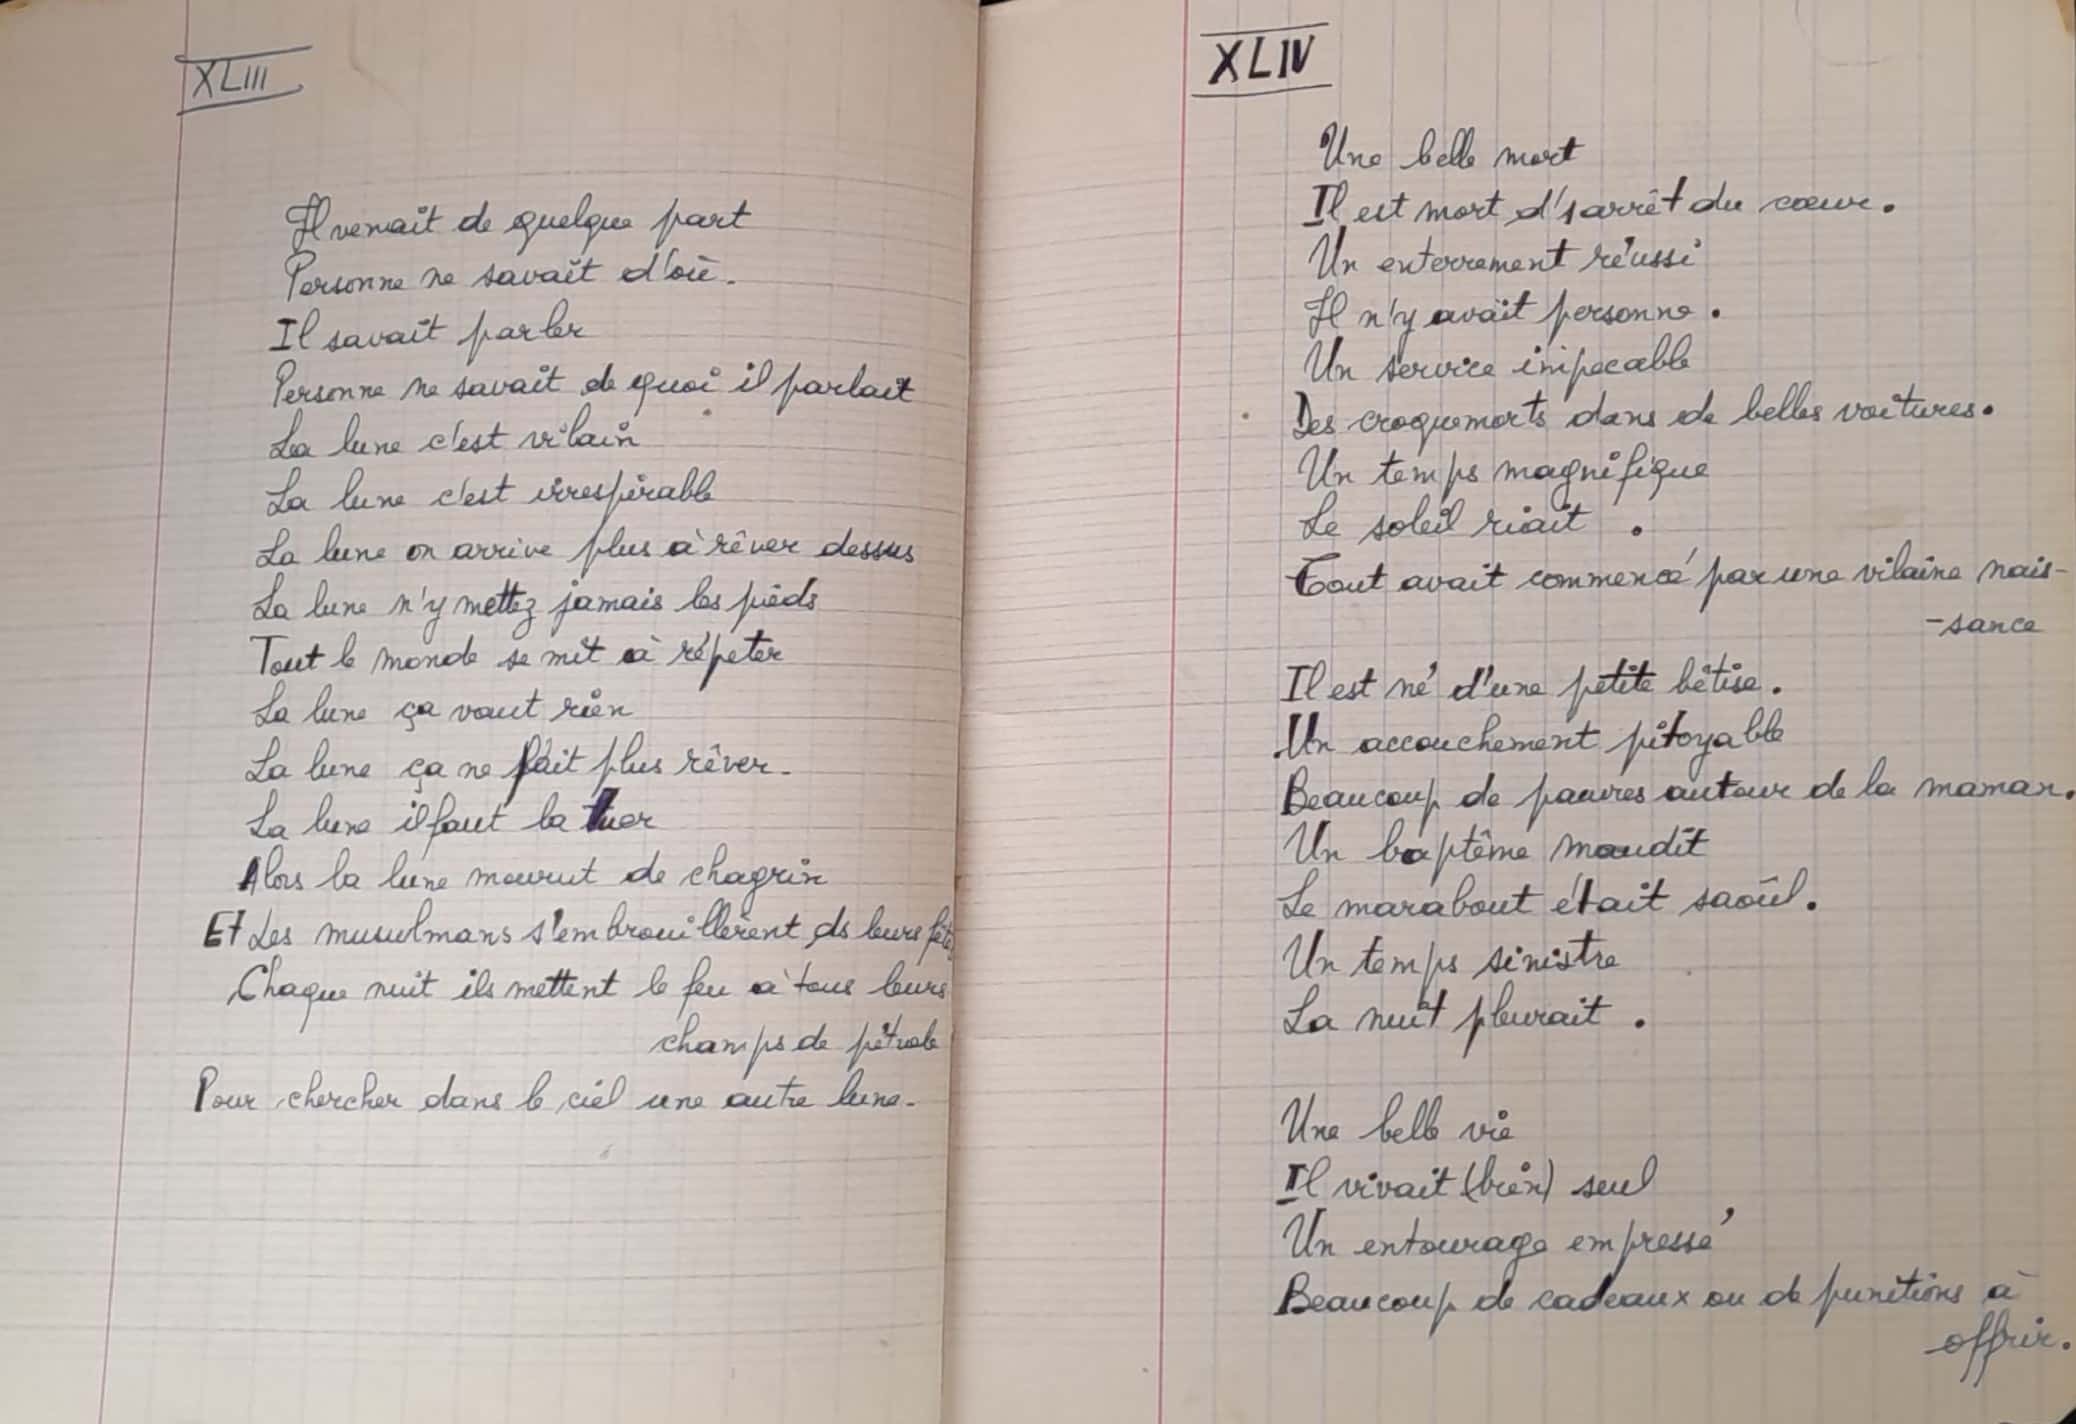 XLIII
Il venait de quelque part
Personne ne savait d'où.
Il savait parler
Personne ne savait de quoi il parlait
La lune c'est vilain
La lune c'est irrespirable
La lune on arrive plus à rêver dessus
La lune n'y mettez jamais les pieds
Tout le monde se mit à répeter
La lune ça vaut rien
La lune ça ne fait plus rêver.
La lune il faut la tuer
Alors la lune mourut de chagrin
Et Les musulmans s'embrouillèrent ds leurs fêtes
Chaque nuit ils mettent le feu à tous leurs
champs de pétrole
Pour chercher dans le ciel une autre lune.
XLIV
Une belle mort
Il est mort d's arrêt du cœur.
Un enterrement réussi
Il n'y avait personne.
Un service impecable
Des croquemorts dans de belles voitures.
Un temps magnifique
Le soleil riait .
Tout avait commencé par une vilaine nais-
-sance
Il est né d'une petite bêtise.
Un accouchement pitoyable
Beaucoup de pauvres autour de la maman.
Un baptême maudit
Le marabout était saoûl.
Un temps sinistre
La nuit pleurait .
Une belle vie
Il vivait (bien) seul
Un entourage empressé
Beaucoup de cadeaux ou de punitions à
offrir.